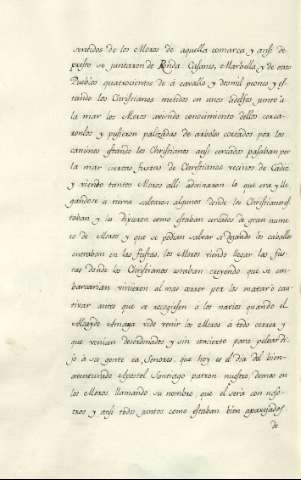 sentidos de los Moros de aquella comarca y ansi de
presto se juntaron de Ronda Casares, Marbella, y de otros
Pueblos quatrocientos de a cavallo y dos mil peones y es-
tando los Christianos metidos en unos
la mar los Moros aviendo conocimiento dellos cerca-
ronlos y pusieron palizadas de arboles cortados por los
caminos estando los Christianos ansi cercados pasaban por
la mar quatro fustas de Christianos vecinos de Cadiz
y viendo tantos Moros alli adivinaron lo que era y lle-
gandose a tierra salieron algunos donde los Christianos es-
taban y la dixeron como estaban cercados de gran nume-
ro de Moros y que se podian salvar si dejando los caballos
entraban en las fustas, los Moros viendo llegar las fus-
tas donde los Christianos estaban creyendo que se em-
barcarian vinieron al mas correr por los matar o cau-
tivar antes que se recogiesen a los navios quando el
Alcayde Amaya vido venir los Moros a todo correr y
que venian desordenados y sin concierto para pelear di-
jo a su gente ea Señores, que hoy es el dia del bien-
aventurado Apostol Santiago patron nuestro, demos en
los Moros llamando su nombre que el será con noso-
tros y ansi todos juntos como estaban bien aparejados
de